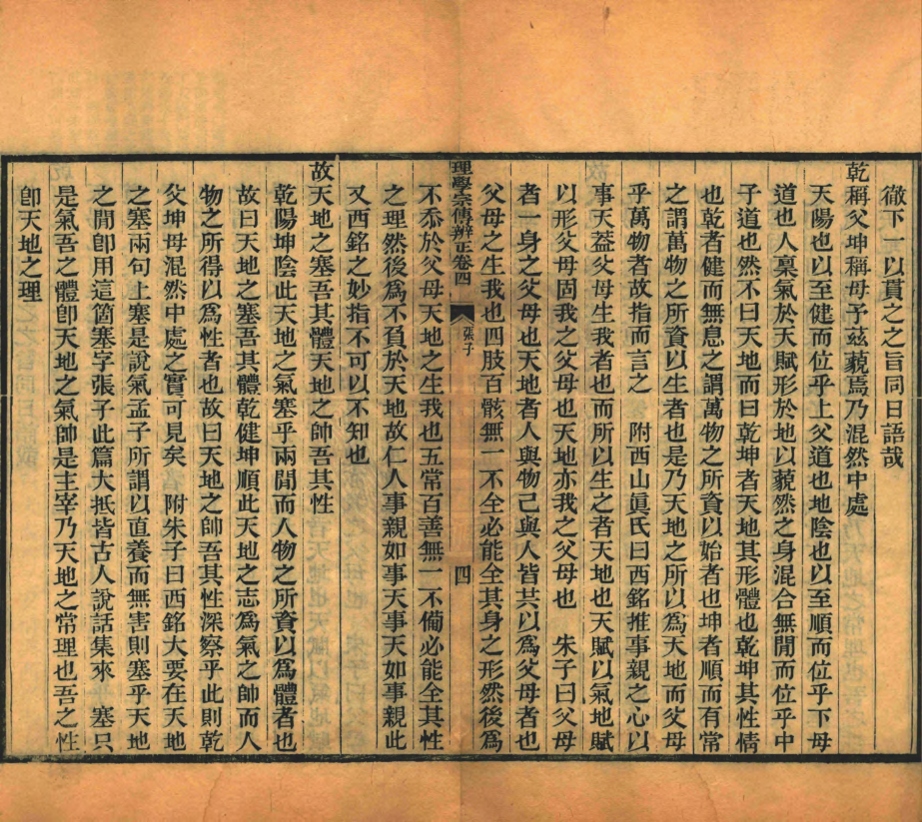 徹下一以貫之之旨同日語哉
乾稱父坤稱母予茲藐焉乃混然中處
天陽也以至健而位乎上父道也地陰也以至順而位乎下母
道也人稟氣於天賦形於地以藐然之身混合無閒而位乎中
子道也然不曰天地而曰乾坤者天地其形體也乾坤其性情
也乾者健而無息之謂萬物之所資以始者也坤者順而有常
之謂萬物之所資以生者也是乃天地之所以為天地而父母
乎萬物者故指而言之　附西山眞氏曰西銘推事親之心以
事天蓋父母生我者也而所以生之者天地也天賦以氣地賦
以形父母固我之父母也天地亦我之父母也　朱子曰父母
者一身之父母也天地者人與物己與人皆共以為父母者也
父母之生我也四肢百骸無一不全必能全其身之形然後為
理學宗傳辨正卷四　張子　四
不忝於父母天地之生我也五常百善無一不僃必能全其性
之理然後為不負於天地故仁人事親如事天事天如事親此
又西銘之妙指不可以不知也
故天地之塞吾其體天地之帥吾其性
乾陽坤陰此天地之氣塞乎兩閒而人物之所資以為體者也
故曰天地之塞吾其體乾健坤順此天地之志為氣之帥而人
物之所得以為性者也故曰天地之帥吾其性深察乎此則乾
父坤母混然中處之實可見矣　附朱子曰西銘大要在天地
之塞兩句上塞是說氣孟子所謂以直養而無害則塞乎天地
之閒卽用這箇塞字張子此篇大抵皆古人說話集來　塞只
是氣吾之體卽天地之氣帥是主宰乃天地之常理也吾之性
卽天地之理